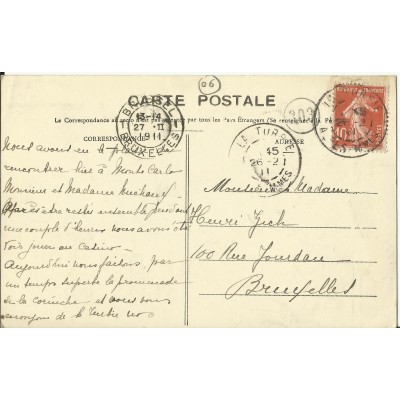 06
CARTE POSTALE
303
La Correspondance au recto n'est pas acceptée par tous les Pays Étrangers (Se renseigner à la Poste)
CORRESPONDANCE
ADRESSE
BRUXELLES
13-14
27 II
1911
BRUXELLES
LA TURBIE
45
26-2
11
10
Nous avons eu le plaisir
rencontrer hier à Monte Carlo
Monsieur et Madame
être restés ensemble pendant
un couple d'heures nous avons été
tous jouer au Casino
Aujourd'hui nous faisons par
un temps superbe la promenade
de la corniche et nous vous
envoyons de la Turbie nos
Monsieur Madame
Henri
100 Rue Jourdan
Bruxelles